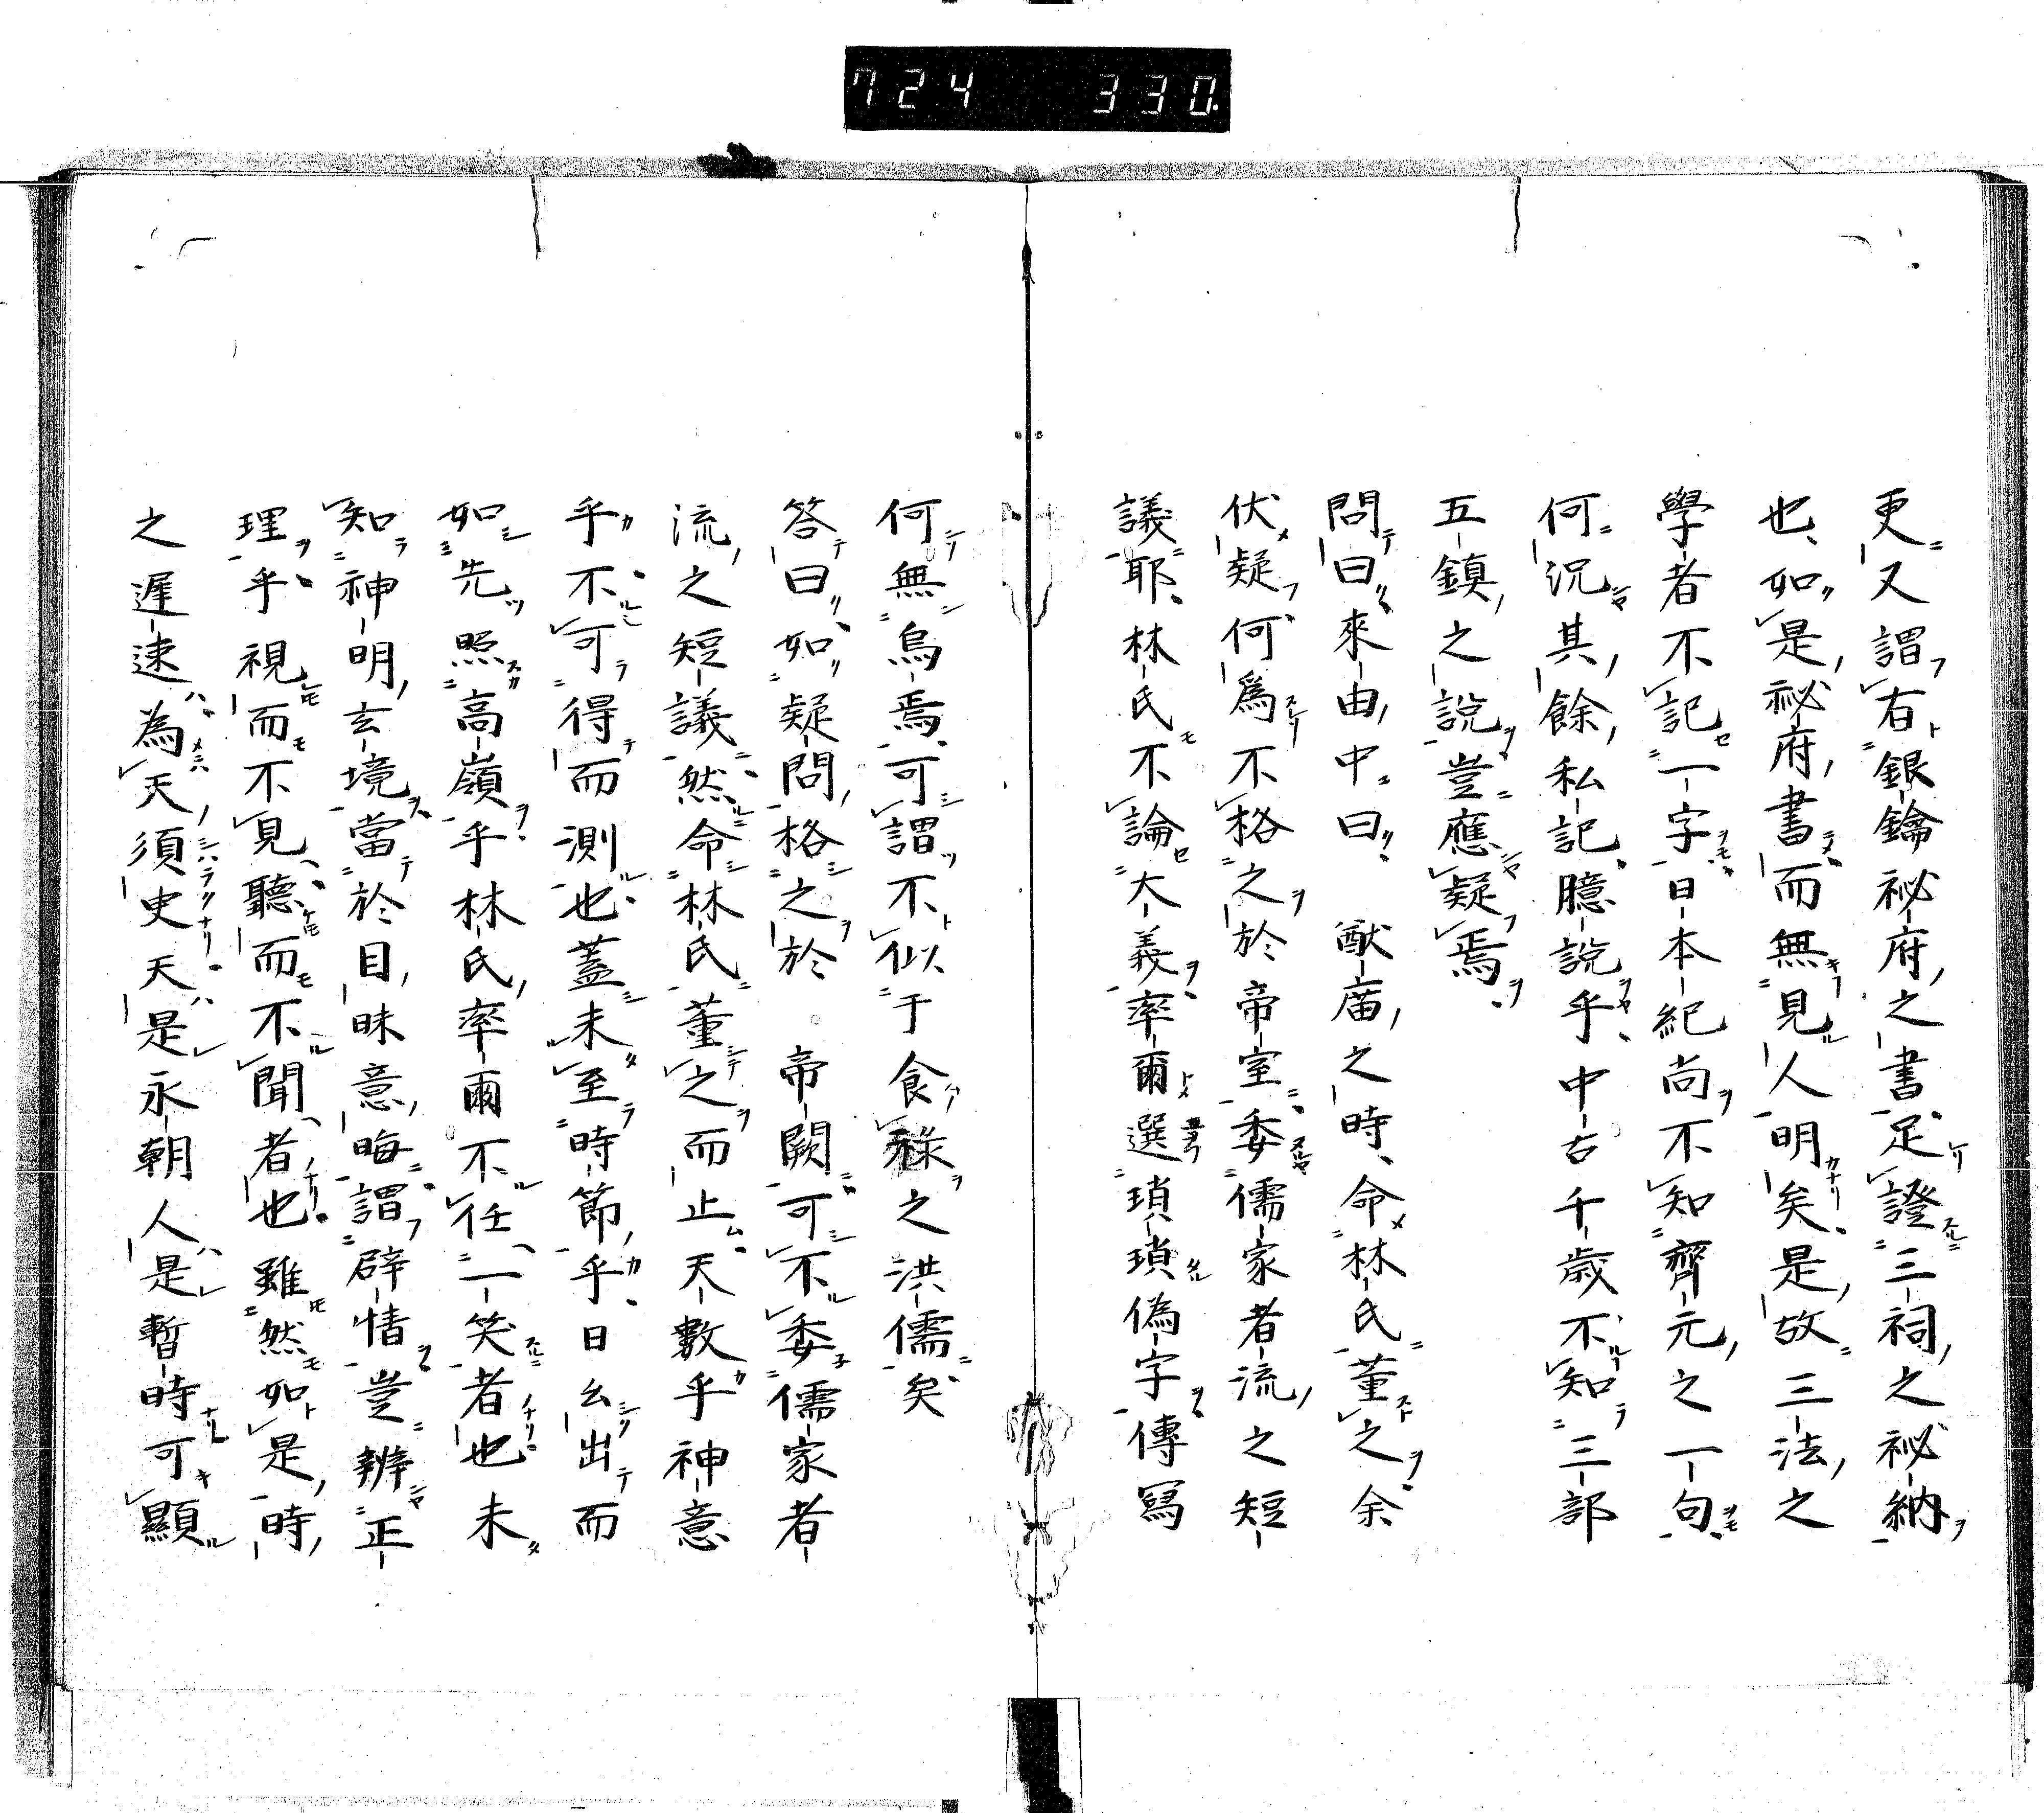 724 330
更又謂右銀鑰祕府之書足證三祠之祕納
也如是祕府書而無見人明矣是故三法之
學者不記一字日本紀尚不知齊元之一句
何況其餘私記臆說乎中古千歲不知三部
五鎮之說豈應疑焉
問曰來由中曰 猷廟之時命林氏董之余
伏疑何爲不格之於帝室委儒家者流之短
議耶林氏不論大義率爾選瑣瑣偽字傳寫
何無烏焉可謂不似于食祿之洪儒矣
答曰如疑問格之於 帝闕可不委儒家者
流之短議然命林氏董之而止天數乎神意
乎不可得而測也蓋未至時節乎日么出而
如先照高嶺乎林氏率爾不任一笑者也未
知神明玄境當於目昧意晦謂辟情豈辨正
理乎視而不見聽而不聞者也雖然如是時
之遲速為天須臾天是永朝人是暫時可顯